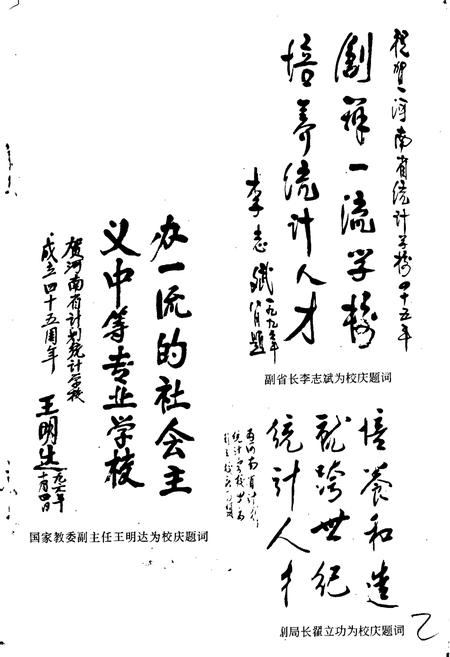 祝贺河南省统计学校四十五年
创办一流学校
培养统计人才
李志斌
一九九六年
题
副省长李志斌为校庆题词
办一流的社会主
义中等专业学校
贺河南省计划统计学校
成立四十五周年
王明达
国家教委副主任王明达为校庆题词
培养和造
就跨世纪
统计人才
副局长翟立功为校庆题词